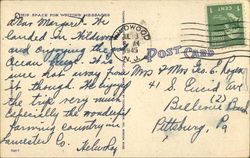 THIS SPACE FOR WRITING MESSAGES
Dear Margaret: We
landed in Wildwood
and enjoying the good
Ocean
sure hot away from
it though. We enjoyed
the trip very much
especially the wonderful
farming country in
Lancaster Co.
WILDWOOD
N. J.
1945
1 CENT
POST CARD
Mrs & Mrs Geo. E. Rogers
41 S. Euclid Ave
Bellevue
Pittsburg, Pa